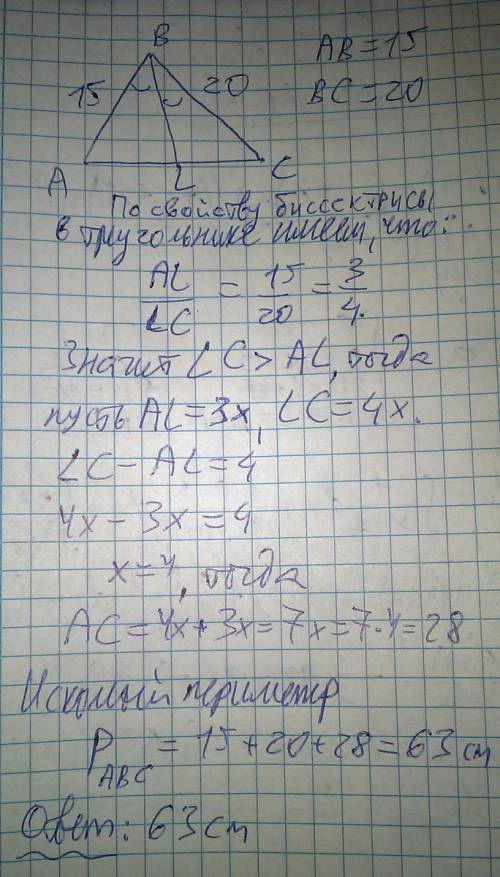 B
AB=15
15
20
BC=20
A
L
C
По свойству биссектрисы
в треугольнике имеем, что:
AL/LC = 15/20 = 3/4.
Значит LC > AL, тогда
пусть AL=3x, LC=4x.
LC-AL=4
4x-3x=4
x=4, тогда
AC=4x+3x=7x=7·4=28
Искомый периметр
P_ABC = 15+20+28=63 см
Ответ: 63 см